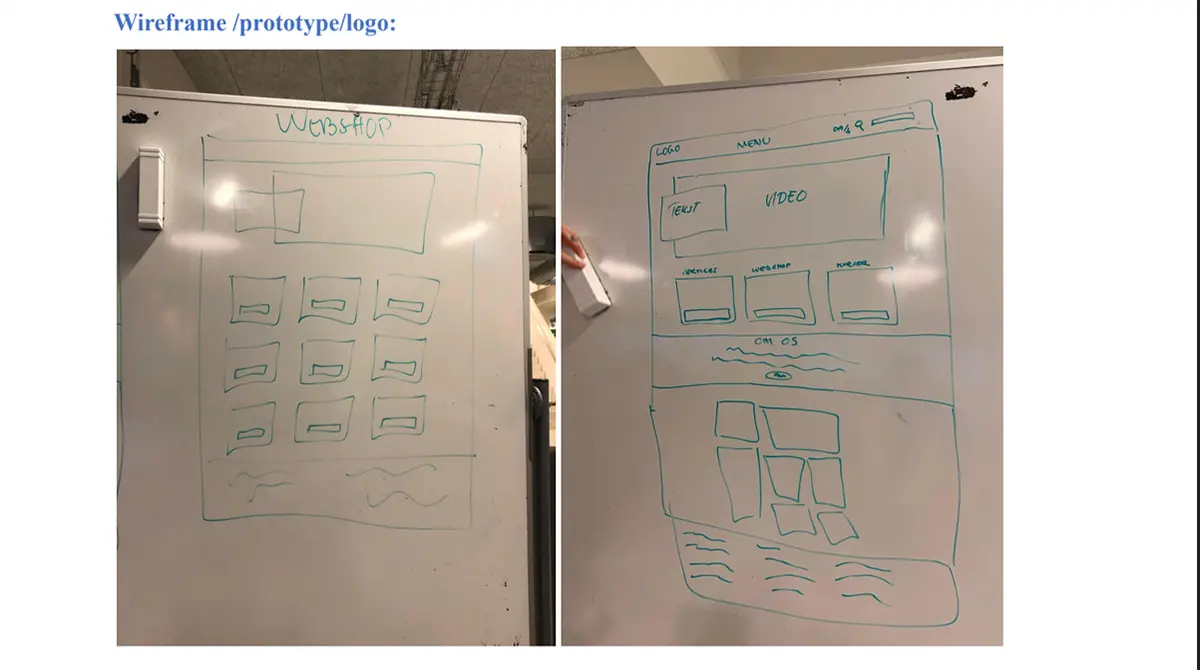 Wireframe /prototype/logo:
WEBSHOP
LOGO
MENU
TEKST
VIDEO
SERVICES
WEBSHOP
OM OS